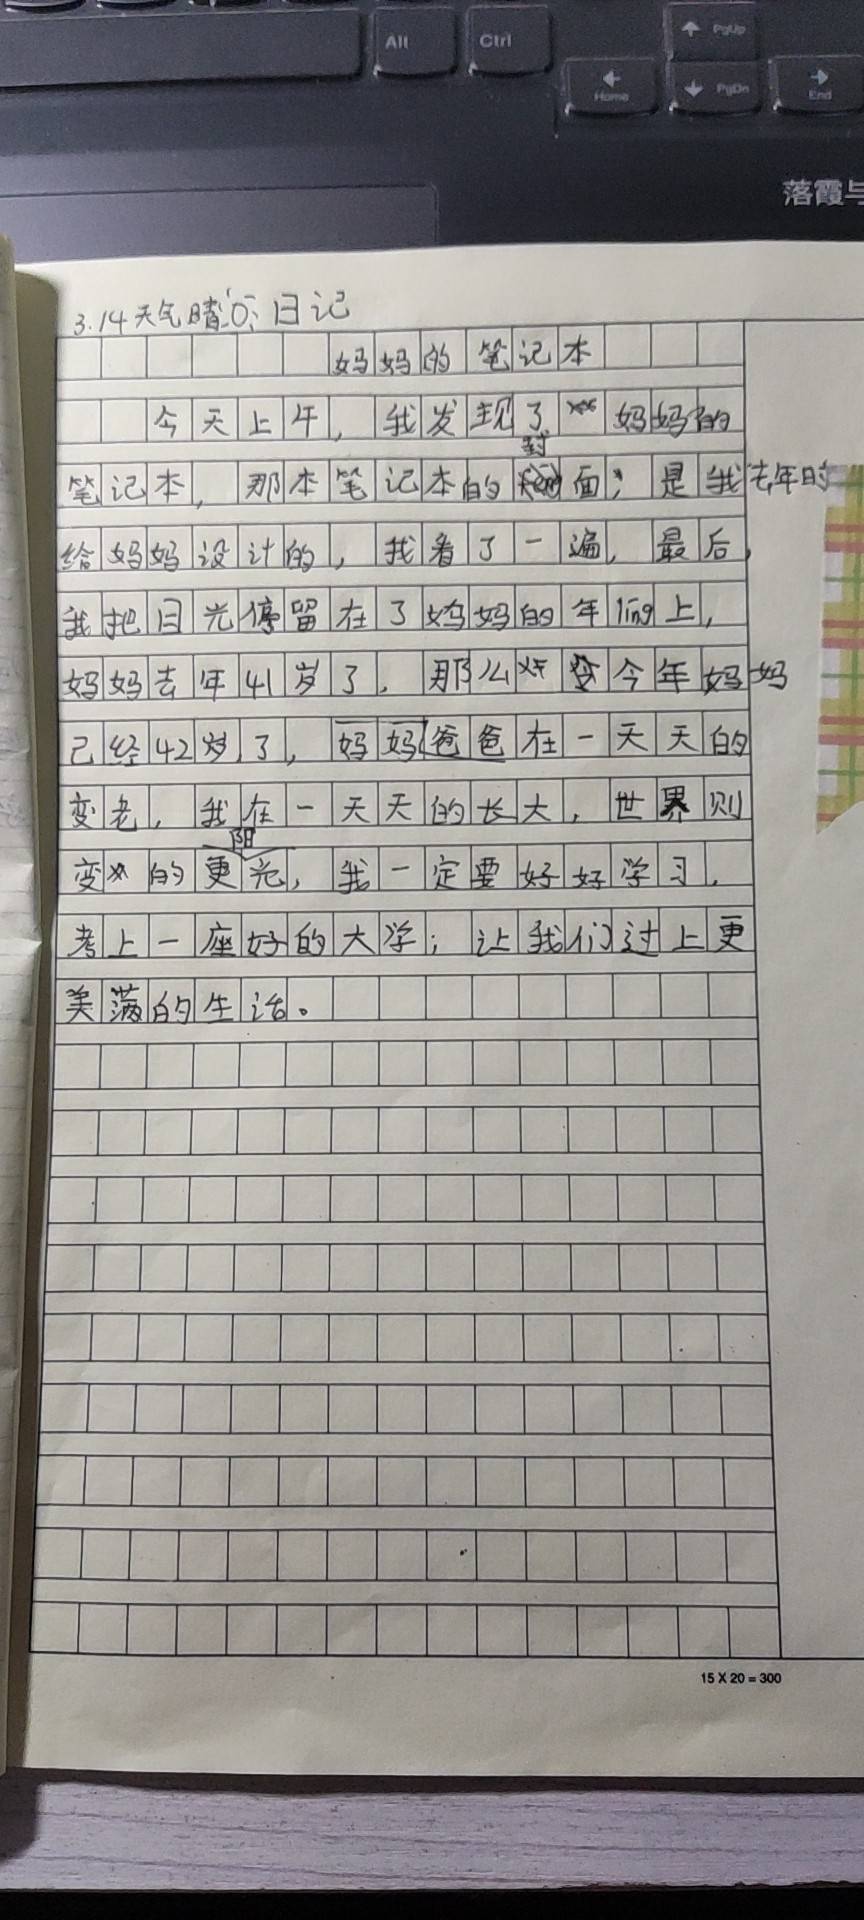 Alt
Ctrl
PgUp
Home
PgDn
End
落霞与
3.14天气晴 日记
妈妈的笔记本
今天上午，我发现了妈妈的
笔记本，那本笔记本的封面；是我去年时
给妈妈设计的，我看了一遍，最后，
我把目光停留在了妈妈的年龄上，
妈妈去年41岁了，那么今年妈妈
已经42岁了，妈妈爸爸在一天天的
变老，我在一天天的长大，世界则
变的更阳光，我一定要好好学习，
考上一座好的大学；让我们过上更
美满的生活。
15 X 20 = 300